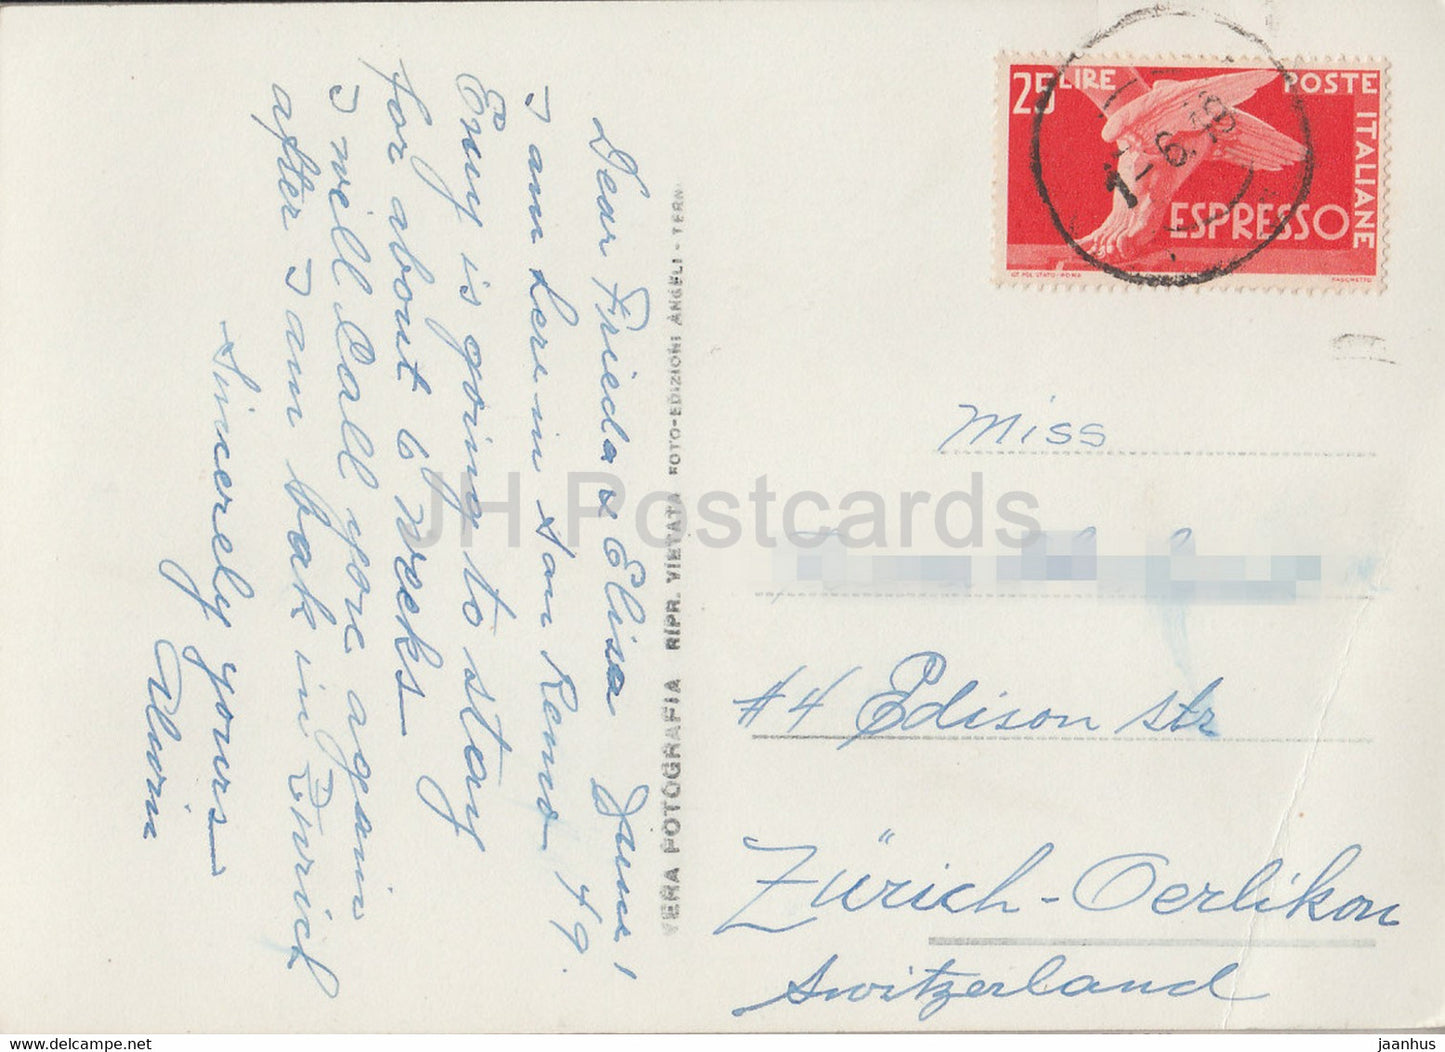 Dear Frieda & Elisa June 1
49.
I am here in San Remo
Eny is going to stay
for about 6 weeks
I will Call yore again
after I am bak in Zurich
Sincerely yours
VERA FOTOGRAFIA RIPR. VIETATA FOTO-EDIZIONI ANGELI - TERNI
25 LIRE
POSTE
ITALIANE
ESPRESSO
IST. POL. STATO - ROMA
MASCHETTO
1-6.49
Miss
#4 Edison Str
Zürich-Oerlikon
Switzerland
JH Postcards
www.delcampe.net
jaanhus